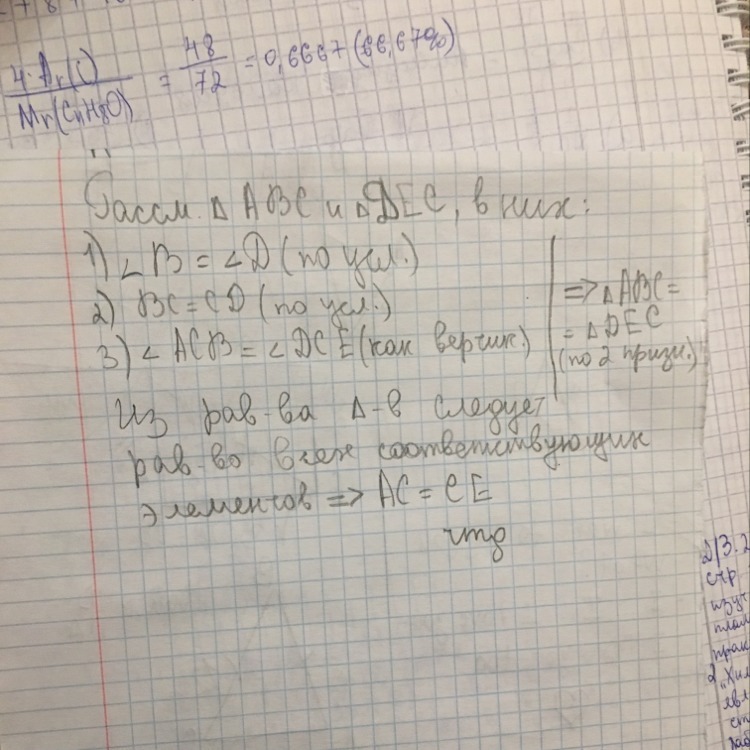 4·Ar(C)
Mr(C4H8O)
= 48
72
= 0,6667 (66,67%)
Рассм. △ ABC и △DEC, в них:
1) ∠B = ∠D (по усл.)
2) BC = CD (по усл.)
3) ∠ACB = ∠DCE (как вертик.)
=> △ABC =
= △DEC
(по 2 призн.)
Из рав-ва △-в следует
рав-во всех соответствующих
элементов => AC = CE
чтд
Д/З.2
стр
изуч
плам
прак
2 „Хим
явл